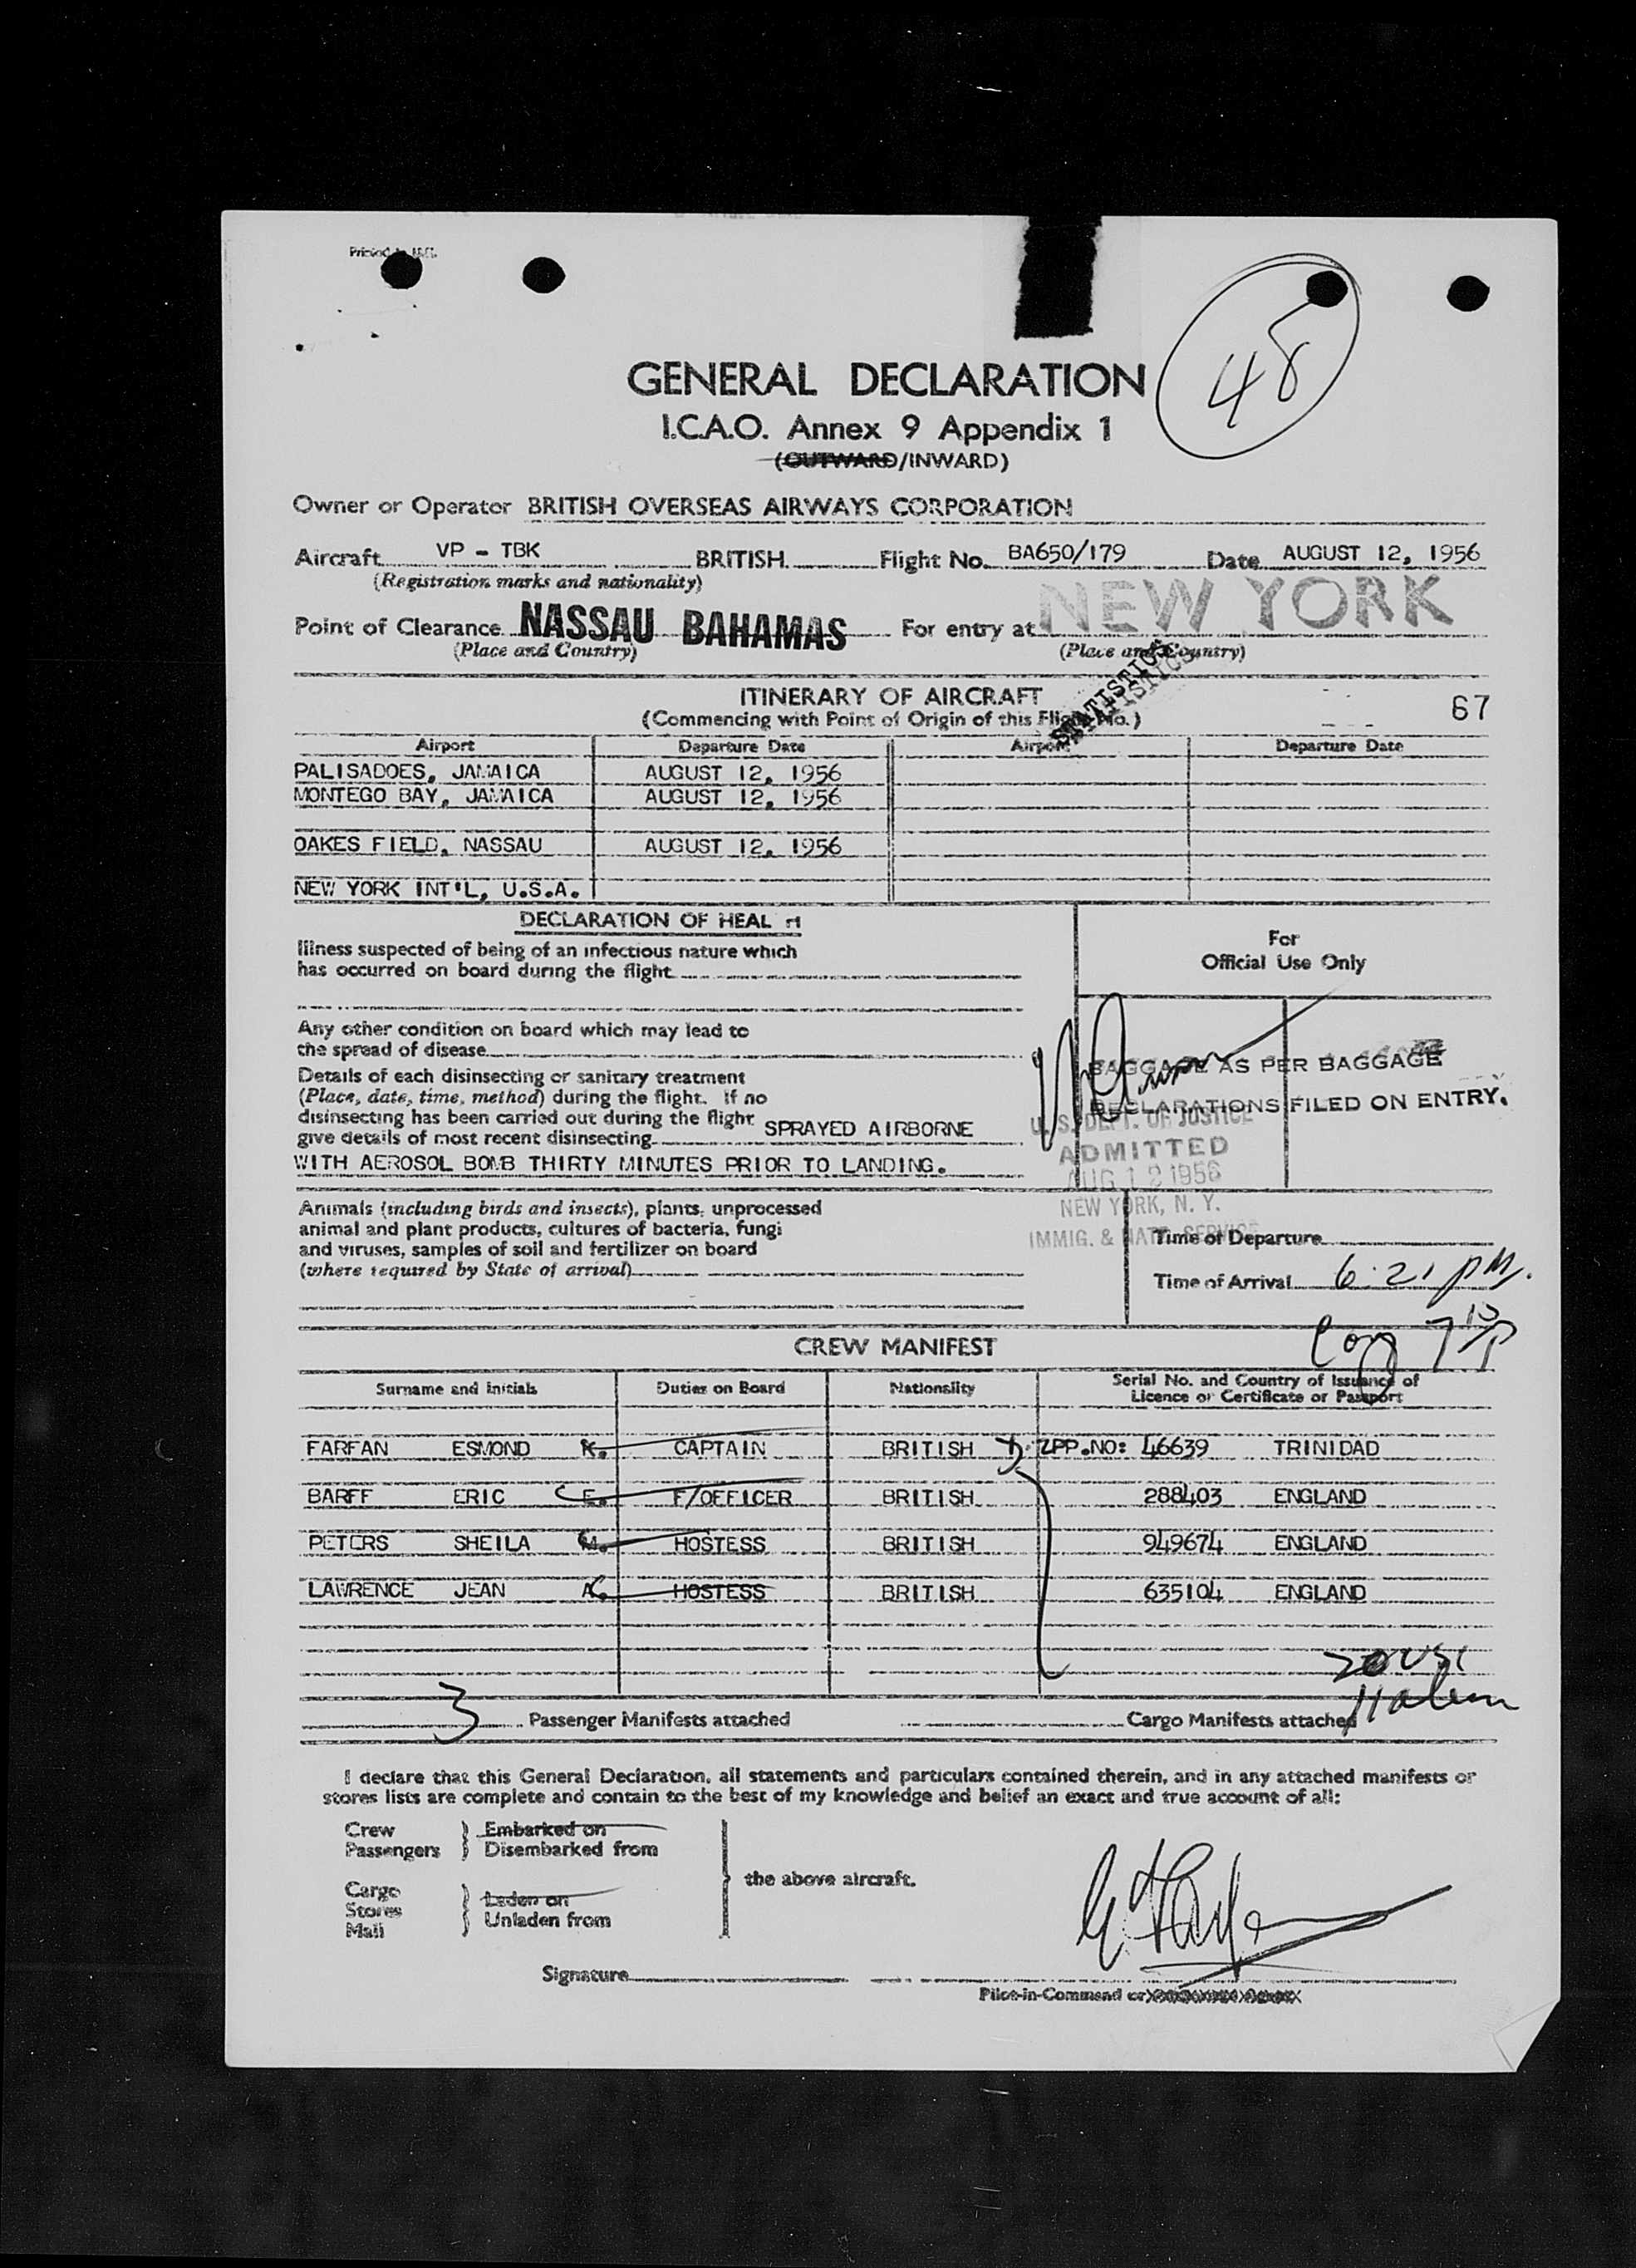 48
GENERAL DECLARATION
I.C.A.O. Annex 9 Appendix 1
(OUTWARD/INWARD)
Owner or Operator BRITISH OVERSEAS AIRWAYS CORPORATION
Aircraft VP - TBK BRITISH Flight No. BA650/179 Date AUGUST 12, 1956
(Registration marks and nationality)
NEW YORK
Point of Clearance NASSAU BAHAMAS For entry at
(Place and Country) (Place and Country)
STATISTICS
ITINERARY OF AIRCRAFT
(Commencing with Point of Origin of this Flight No.) 67
Airport Departure Date Airport Departure Date
PALISADOES, JAMAICA AUGUST 12, 1956
MONTEGO BAY, JAMAICA AUGUST 12, 1956
OAKES FIELD, NASSAU AUGUST 12, 1956
NEW YORK INT'L, U.S.A.
DECLARATION OF HEAL
For
Official Use Only
Illness suspected of being of an infectious nature which
has occurred on board during the flight
Any other condition on board which may lead to
the spread of disease
Details of each disinsecting or sanitary treatment
(Place, date, time, method) during the flight. If no
disinsecting has been carried out during the flight
give details of most recent disinsecting SPRAYED AIRBORNE
WITH AEROSOL BOMB THIRTY MINUTES PRIOR TO LANDING.
BAGGAGE AS PER BAGGAGE
DECLARATIONS FILED ON ENTRY.
U. S. DEPT. OF JUSTICE
ADMITTED
AUG 12 1956
NEW YORK, N. Y.
IMMIG. & NATZ. SERVICE
Animals (including birds and insects), plants, unprocessed
animal and plant products, cultures of bacteria, fungi
and viruses, samples of soil and fertilizer on board
(where required by State of arrival)
Time of Departure
Time of Arrival 6:21 PM.
CREW MANIFEST
Surname and Initials Duties on Board Nationality Serial No. and Country of Issuance of
Licence or Certificate or Passport
FARFAN ESMOND K. CAPTAIN BRITISH PP.NO: 46639 TRINIDAD
BARFF ERIC E. F/OFFICER BRITISH 288403 ENGLAND
PETERS SHEILA M. HOSTESS BRITISH 949674 ENGLAND
LAWRENCE JEAN A. HOSTESS BRITISH 635104 ENGLAND
20 USC
11 alien
3 Passenger Manifests attached Cargo Manifests attached
I declare that this General Declaration, all statements and particulars contained therein, and in any attached manifests or
stores lists are complete and contain to the best of my knowledge and belief an exact and true account of all:
Crew Embarked on
Passengers Disembarked from
the above aircraft.
Cargo Laden on
Stores Unladen from
Mail
Signature
Pilot-in-Command or